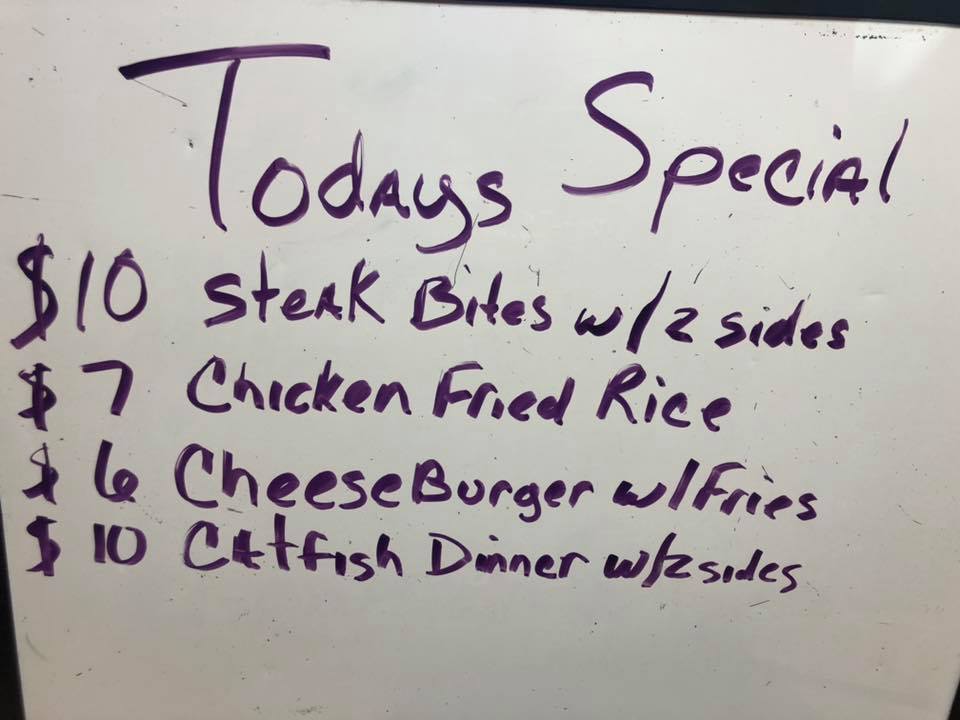 Todays Special
$10 Steak Bites w/2 sides
$7 Chicken Fried Rice
$6 CheeseBurger w/Fries
$10 Catfish Dinner w/2sides